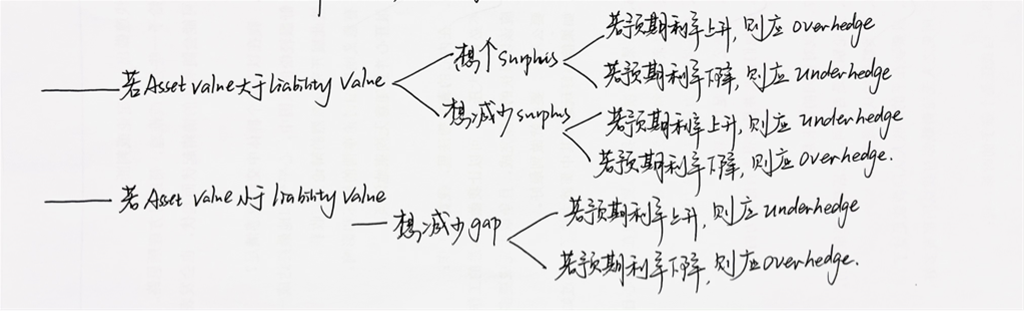 若预期利率上升，则应 overhedge
想个 surplus
若Asset value大于liability value
若预期利率下降，则应 underhedge
想减少surplus
若预期利率上升，则应 underhedge
若预期利率下降，则应 overhedge.
若Asset value小于liability value
想减少gap
若预期利率上升，则应 underhedge
若预期利率下降，则应overhedge.